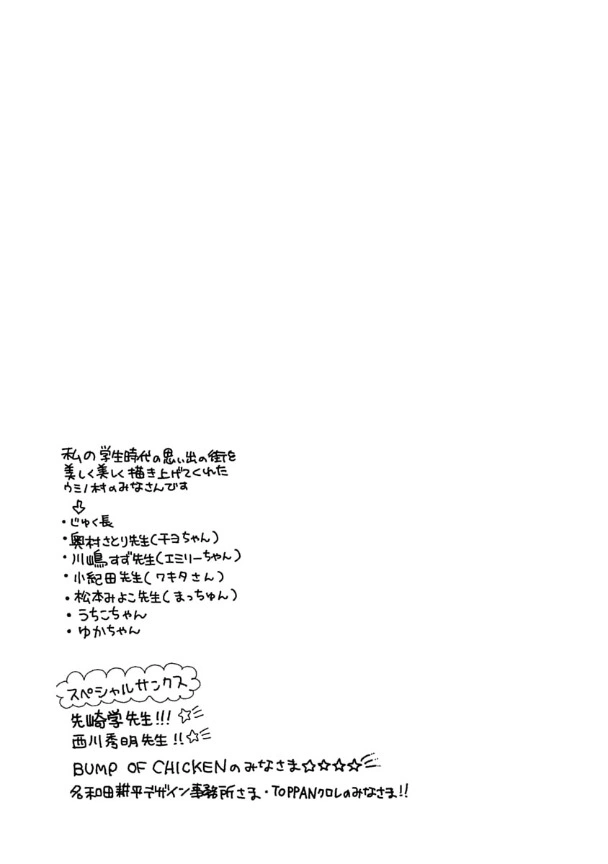 私の学生時代の思い出の街を
美しく美しく描き上げてくれた
ウミノ村のみなさんです
⇩
・じゅく長
・奥村さとり先生(チヨちゃん)
・川嶋すず先生(エミリーちゃん)
・小紀田先生(ワキタさん)
・松本みよこ先生(まっちゅん)
・うちこちゃん
・ゆかちゃん
スペシャルサンクス
先崎学先生!!!☆
西川秀明先生!!☆
BUMP OF CHICKENのみなさま☆☆☆☆
名和田耕平デザイン事務所さま・TOPPANクロレのみなさま!!